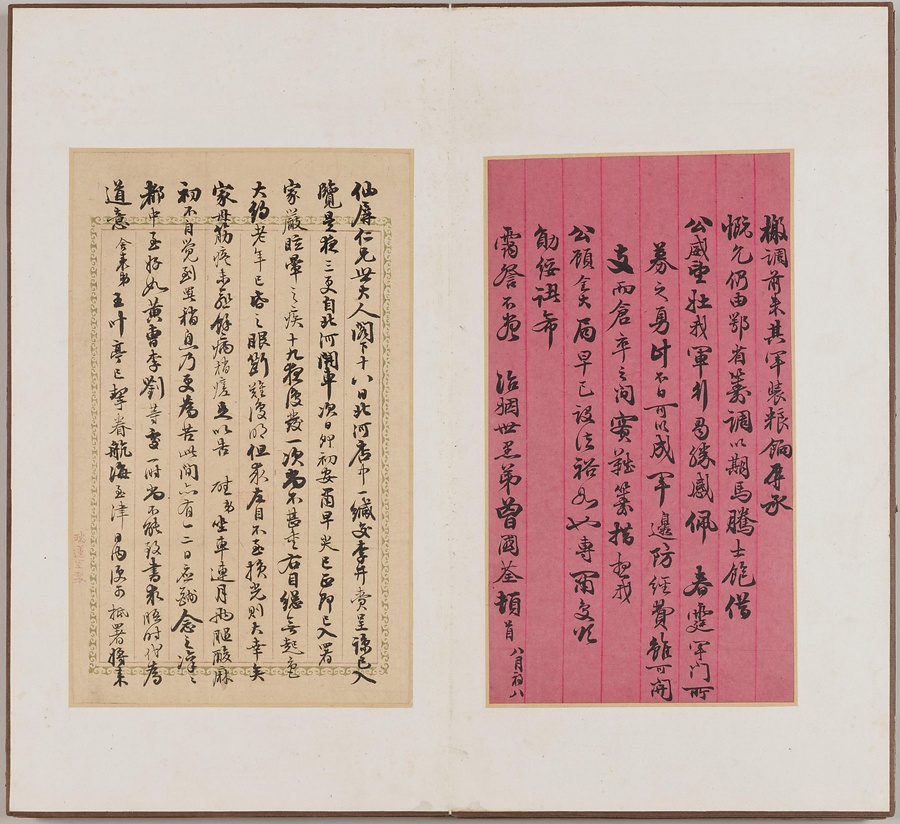 檄調前來其軍裝糧餉屢承
慨允仍由鄂省籌調以期馬騰士飽借
公威望壯我軍行曷勝感佩 春霆軍門所
募之勇計不日可以成軍邊防經費雖可開
支而倉卒之間實難籌措想我
公顧全大局早已設法裕如也專肅敬頌
勛綏諸希
靄詧不盡 治姻世愚弟曾國荃頓首 八月初八
仙屏仁兄世大人閣下十八日北河店中一緘交李升賚呈諒已入
覽是夜三更自北河開車次日卯初安肅早尖巳正即已入署
家嚴眩暈之疾十九夜復發一次尚不甚重右目總無起色
大約老年已昏之眼斷難復明但求左目不至損光則大幸矣
家母筋疼未愈餘病稍瘥足以告 坐車連月兩腿酸麻
初不自覺到此稍息乃更為苦此間亦有一二日應酬念之
都中至好如黃曹李劉等處一時尚不能致書求晤時代為
道意 舍表弟 玉叶亭已挈眷航海至津日內便可抵署勝來